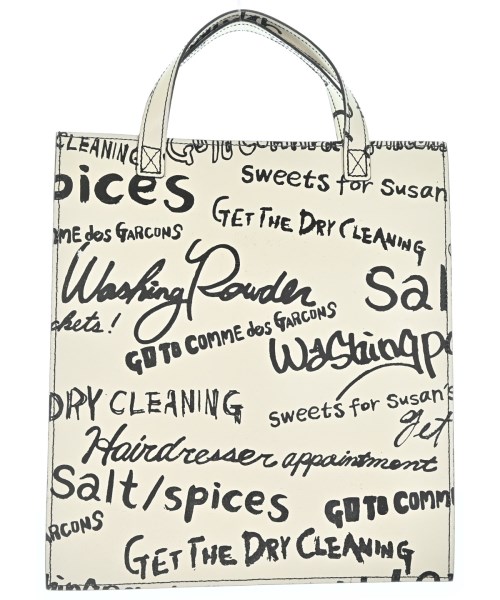 CLEANING
pices
Sweets for Susan
GET THE DRY CLEANING
OME des GARCONS
Washing Powder
Sal
ckets!
GO TO COMME des GARCONS
Washing po
DRY CLEANING
sweets for Susan's
get
Hairdresser appointment
Salt/spices
GO TO COMM
GARCONS
GET THE DRY CLEANING